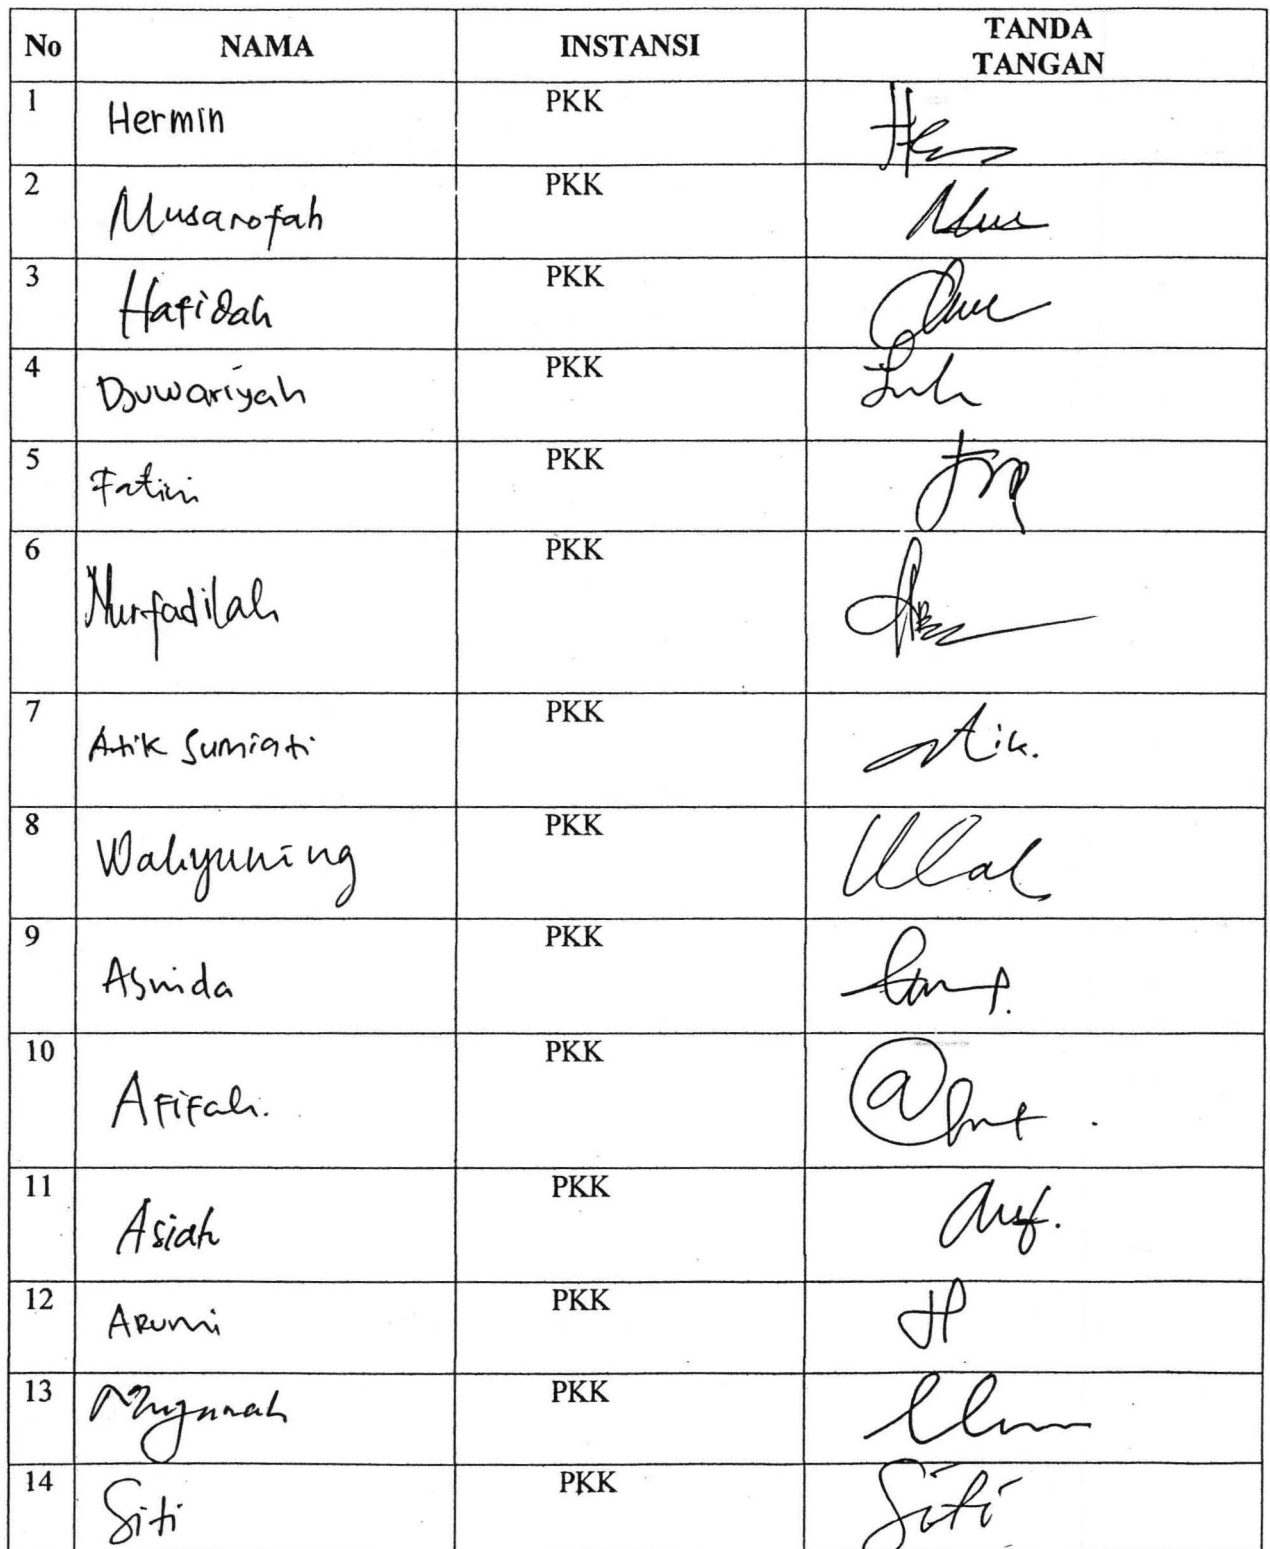 No NAMA INSTANSI TANDA TANGAN
1 Hermin PKK
2 Musarofah PKK
3 Hafidah PKK
4 Djuwariyah PKK
5 Fatini PKK
6 Nurfadilah PKK
7 Atik Sumiati PKK Atik.
8 Wahyuning PKK
9 Asnida PKK
10 Afifah. PKK
11 Asiah PKK
12 Arumi PKK
13 PKK
14 Siti PKK Siti